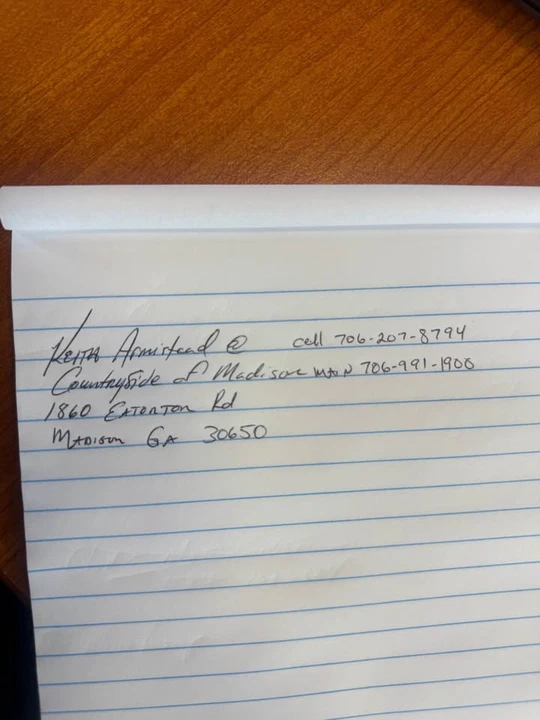 Keith Armistead @ cell 706-207-8794
Countryside of Madison MAIN 706-991-1900
1860 EATONTON Rd
MADISON GA 30650